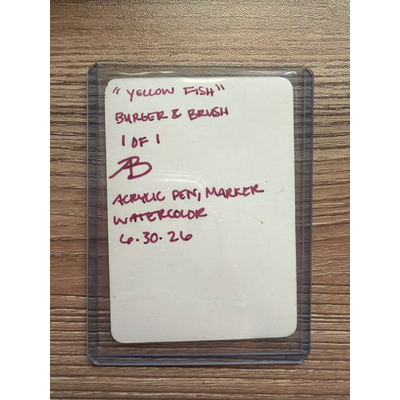 "YELLOW FISH"
BURGER & BRUSH
1 OF 1
AB
ACRYLIC PEN, MARKER
WATERCOLOR
6.30.26